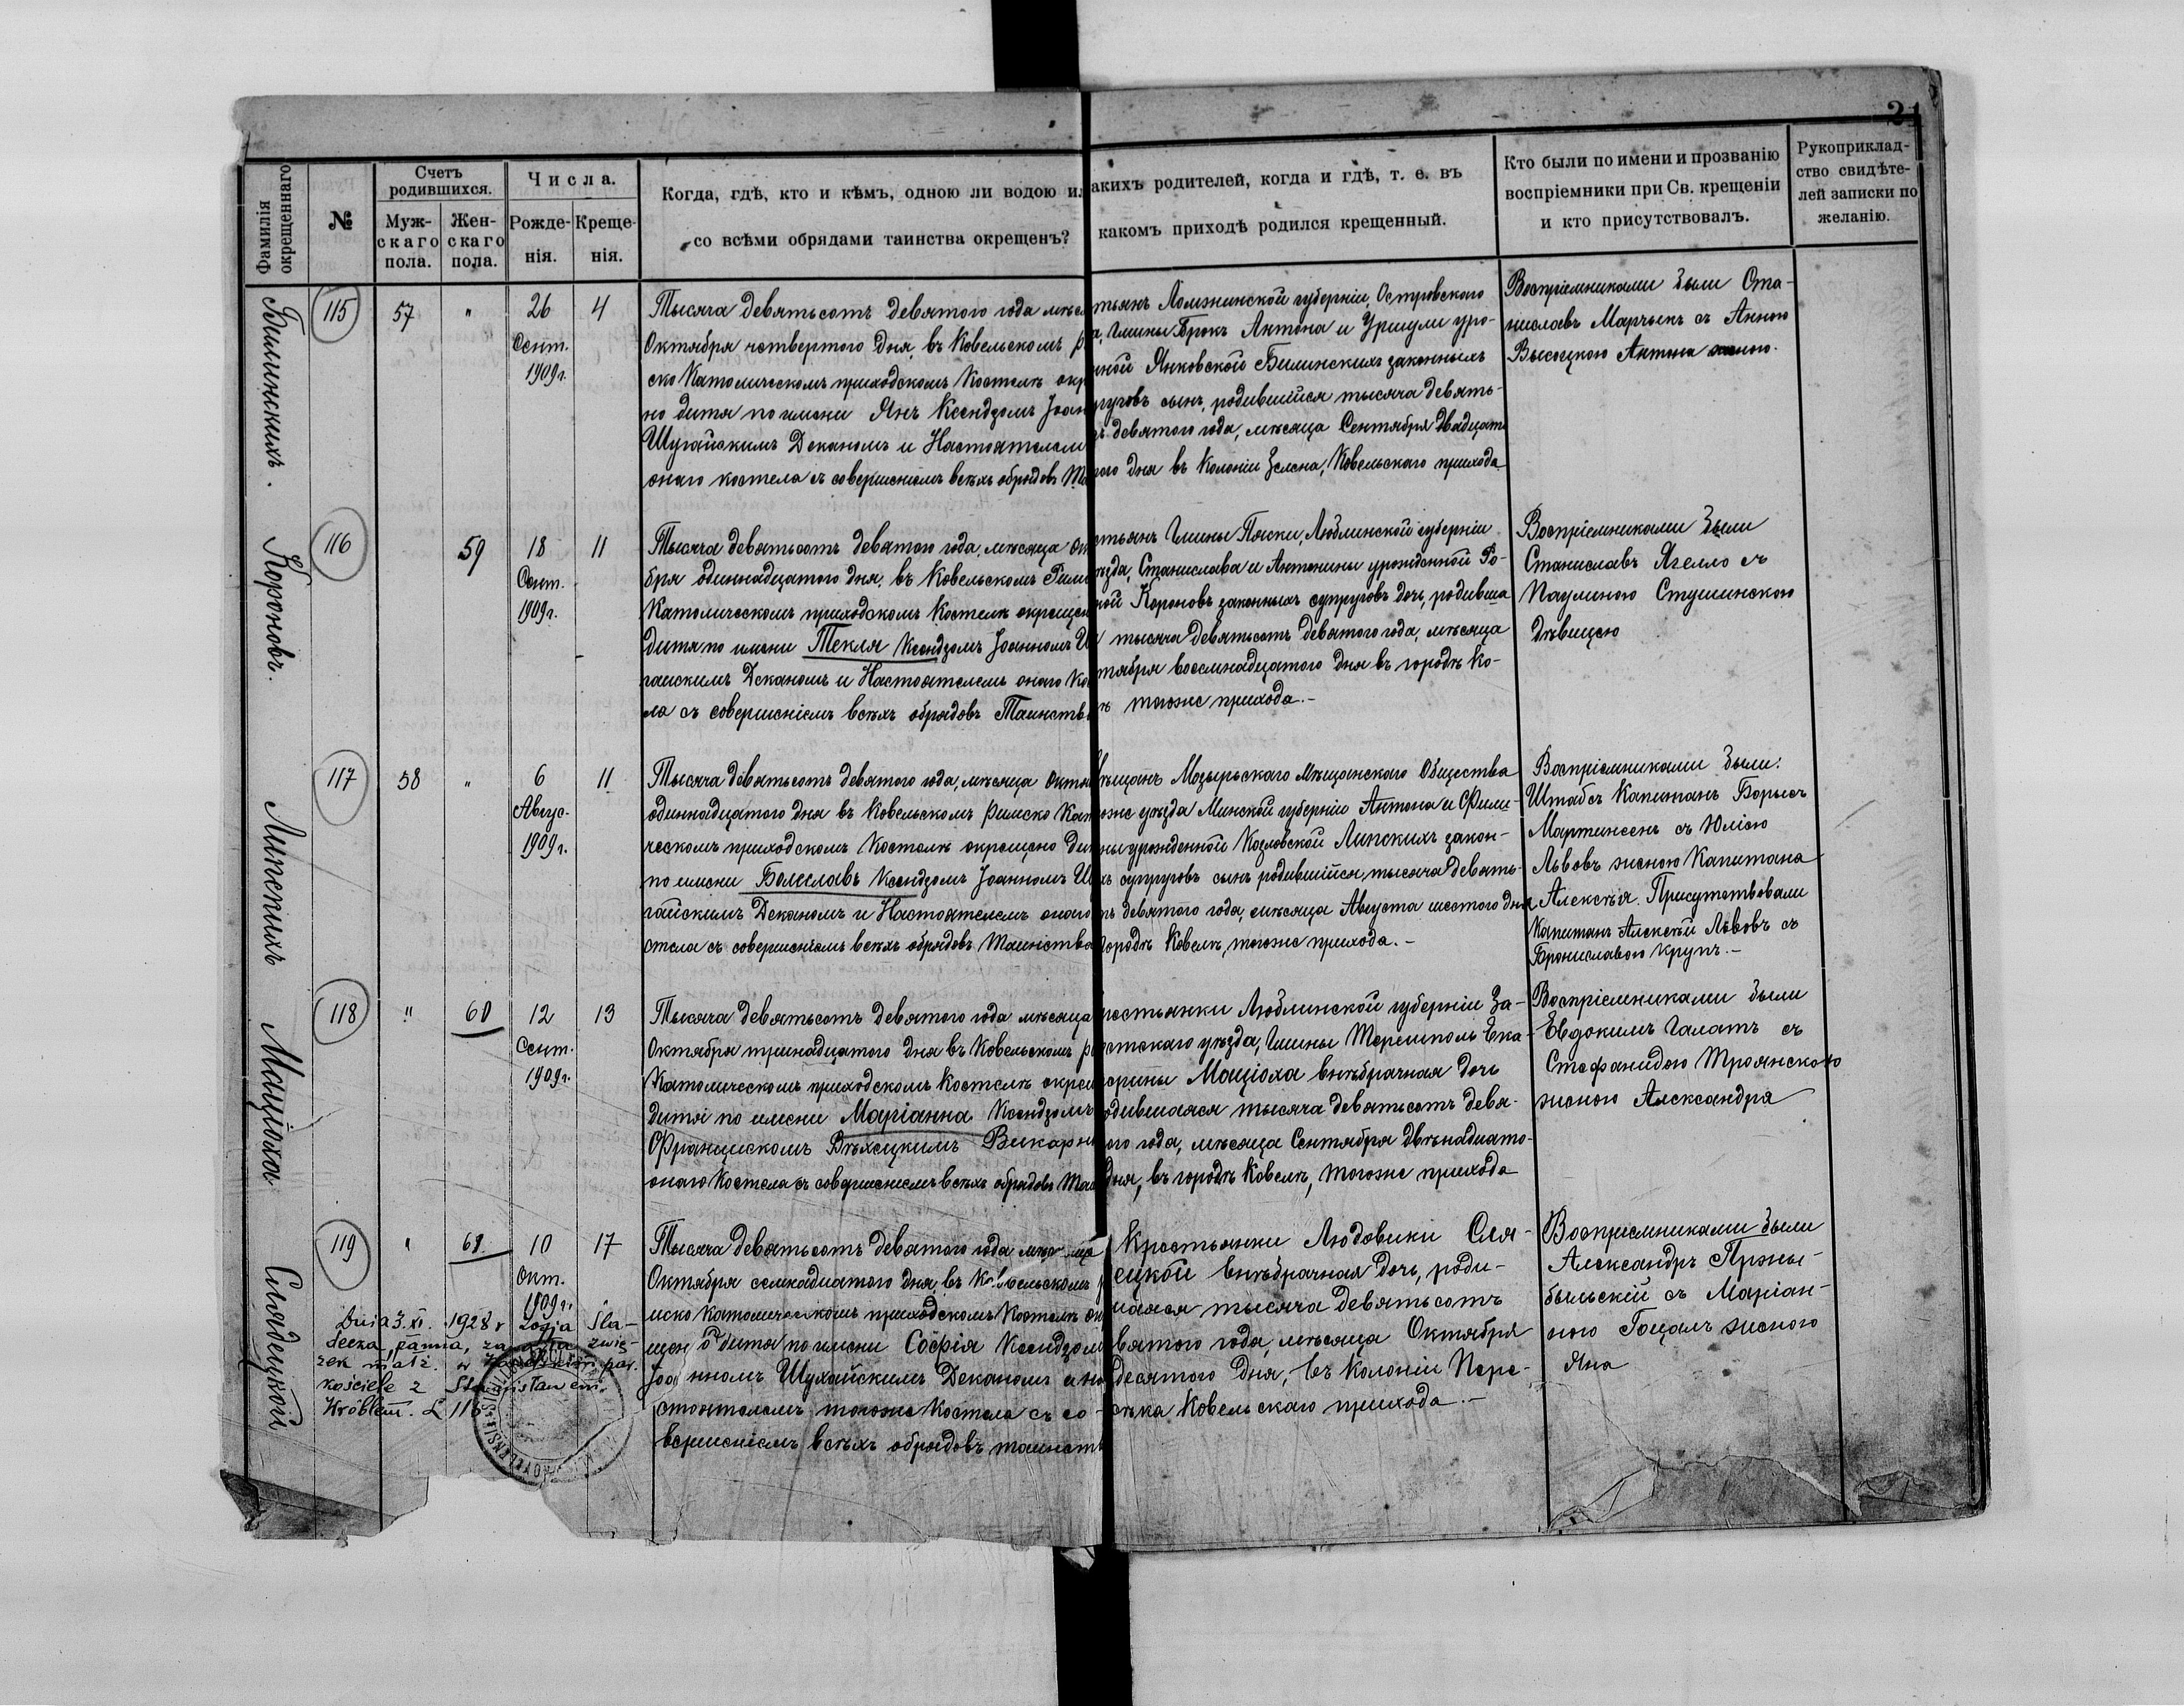 21
Фамилія окрещеннаго
№
Счетъ родившихся.
Муж-скаго пола.
Жен-скаго пола.
Числа.
Рожде-нія.
Креще-нія.
Когда, гдѣ, кто и кѣмъ, одною ли водою ил
со всѣми обрядами таинства окрещенъ?
акихъ родителей, когда и гдѣ, т. е. въ
какомъ приходѣ родился крещенный.
Кто были по имени и прозванію
воспріемники при Св. крещеніи
и кто присутствовалъ.
Рукоприклад-
ство свидѣте-
лей записки по
желанію.
Билинскихъ.
115
57
"
26
Сент.
1909г.
4
Тысяча девятьсотъ девятого года мѣся
Октября четвертого дня, въ Ковельскомъ р
ско Католическомъ приходскомъ Костелѣ окр
но дитя по имени Янъ Ксендзомъ Іоан
Шугайскимъ Деканомъ и Настоятелем
онаго костела съ совершеніемъ всѣхъ обрядовъ Та
тьянъ Ломжинской губерніи, Островского
а, Гмины Брокъ Антона и Уршули уро-
нной Янковской Билинскихъ законныхъ
руговъ сынъ, родившійся тысяча девять-
ъ девятого года, мѣсяца Сентября двадцать
ого дня въ Колоніи Зелена, Ковельскаго прихода
Воспріемниками были Ста-
ниславъ Марчыкъ съ Анною
Высоцкою Антона женою.
Короновъ.
116
59
18
Сент.
1909г.
11
Тысяча девятьсотъ девятого года, мѣсяца Ок
бря одиннадцатого дня, въ Ковельскомъ Рим
Католическомъ приходскомъ Костелѣ окрещен
дитя по имени Текля Ксендзомъ Іоанномъ Ш
гайскимъ Деканомъ и Настоятелемъ онаго Ко
ла съ совершеніемъ всѣхъ обрядовъ Таинств
стьянъ Гмины Пяски, Люблинской губерніи
ѣзда, Станислава и Антонины урожденной Ро-
ной Короновъ законныхъ супруговъ дочь, родивша
тысяча девятьсотъ девятого года, мѣсяца
тября восемнадцатого дня въ городѣ Ко-
ѣ тогоже прихода.-
Воспріемниками были
Станиславъ Ягелло съ
Паулиною Стушинскою
дѣвицею
Липскихъ
117
58
"
6
Авгус.
1909г.
11
Тысяча девятьсотъ девятого года, мѣсяца Октя
одиннадцатого дня въ Ковельскомъ Римско Кат
ческомъ приходскомъ Костелѣ окрещено ди
по имени Болеславъ Ксендзомъ Іоанномъ Ш
гайскимъ Деканомъ и Настоятелемъ онаго
стела съ совершеніемъ всѣхъ обрядовъ Таинства
ѣщанъ Мозырьскаго Мѣщанского Общества
оже уѣзда Минской губерніи Антона и Фили-
ны урожденной Козловской Липскихъ закон-
хъ супруговъ сынъ родившійся, тысяча девять-
ъ девятого года, мѣсяца Августа шестого дня
городѣ Ковелѣ, тогоже прихода.-
Воспріемниками были:
Штабсъ Капитанъ Борысъ
Мартинсенъ съ Юліею
Львовъ женою Капитана
Алексѣя. Присутствовали
Капитанъ Алексѣй Львовъ съ
Брониславою Крупъ.-
Маціоха
118
"
60
12
Сент.
1909г.
13
Тысяча девятьсотъ девятого года мѣсяца
Октября тринадцатого дня въ Ковельскомъ р
Католическомъ приходскомъ Костелѣ окрещ
дитя по имени Маріанна Ксендзомъ
Францискомъ Викарі
онаго Костела съ совершеніемъ всѣхъ обрядовъ Таи
рестьянки Люблинской губерніи За-
стскаго уѣзда, Гмины Терешполь Ека-
ерины Маціоха внѣбрачная дочь
одившаяся тысяча девятьсотъ девя-
ого года, мѣсяца Сентября двѣнадцато-
дня, въ городѣ Ковелѣ, тогоже прихода
Воспріемниками были
Евдокимъ Галатъ съ
Стефанидою Троянскою
женою Александра
Слядецкой
119
"
61
10
Окт.
1909г.
17
Тысяча девятьсотъ девятого года мѣсяца
Октября семнадцатого дня, въ Ковельскомъ р
мско Католическомъ приходскомъ Костелѣ ок
щено дитя по имени Софія Ксендзом
Іоанномъ Шугайскимъ Деканомъ и На
стоятелемъ тогоже Костела съ со-
вершеніемъ всѣхъ обрядовъ таинств
Крестьянки Людовики Сля-
ецкой внѣбрачная дочь, роди-
шаяся тысяча девятьсотъ
вятого года, мѣсяца Октября
десятого дня, въ колоніи Пере-
сѣка Ковельскаго прихода.-
Воспріемниками были
Александръ Пржы-
быльскій съ Маріан-
ною Гоцалъ женою
Яна
Dnia 3.XI. 1928 r Zofja Śla-
decka, panna, zawarła zwią-
zek małż. w par.
kościele z Stanisławem
Wróblem. L 116